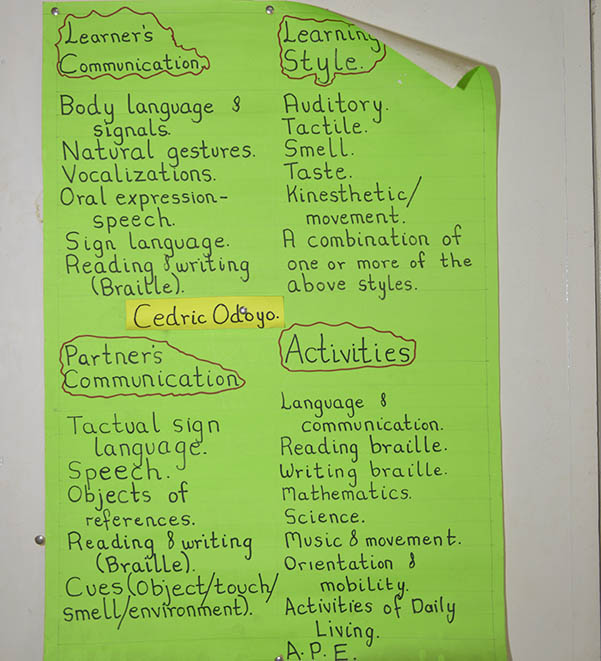 Learner's
Communication.
Body language &
signals.
Natural gestures.
Vocalizations.
Oral expression-
speech.
Sign language.
Reading & writing
(Braille).
Learning
Style.
Auditory.
Tactile.
Smell.
Taste.
Kinesthetic/
movement.
A combination of
one or more of the
above styles.
Cedric Odoyo.
Partner's
Communication
Tactual sign
language.
Speech.
Objects of
references.
Reading & writing
(Braille).
Cues (Object/touch/
smell/environment).
Activities
Language &
communication.
Reading braille.
Writing braille.
Mathematics.
Science.
Music & movement.
Orientation &
mobility.
Activities of Daily
Living.
A.P.E.